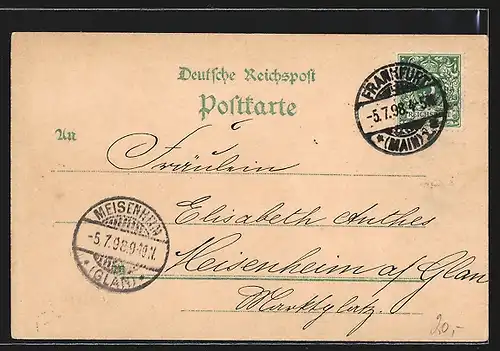 Deutsche Reichspost
Postkarte
FRANKFURT
-5.7.98.4-5N.
*(MAIN)1.*
An
Fräulein
Elisabeth Anthes
MEISENHEIM
-5.7.98.9-10.N.
*(GLAN)*
in
Meisenheim a/Glan
Marktplatz.
20,-